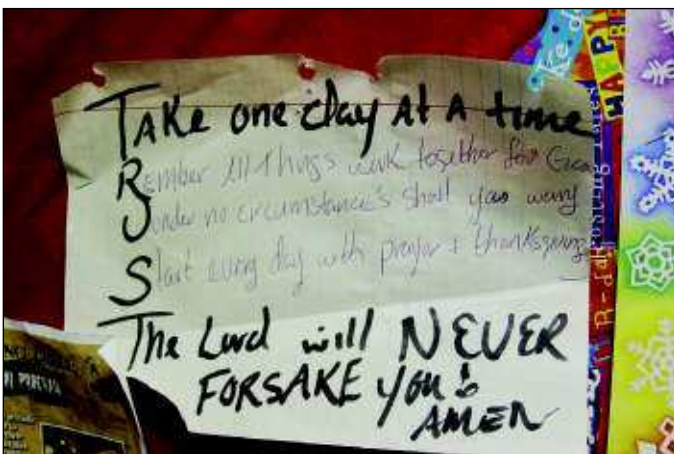 TAKe one day At A time
Rember All Things work together for Good
Under no circumstance's shall you worry
Start every day with prayer + thanksgiving
The Lord will NEVER
FORSAKE you!
AMEN
HAPPY